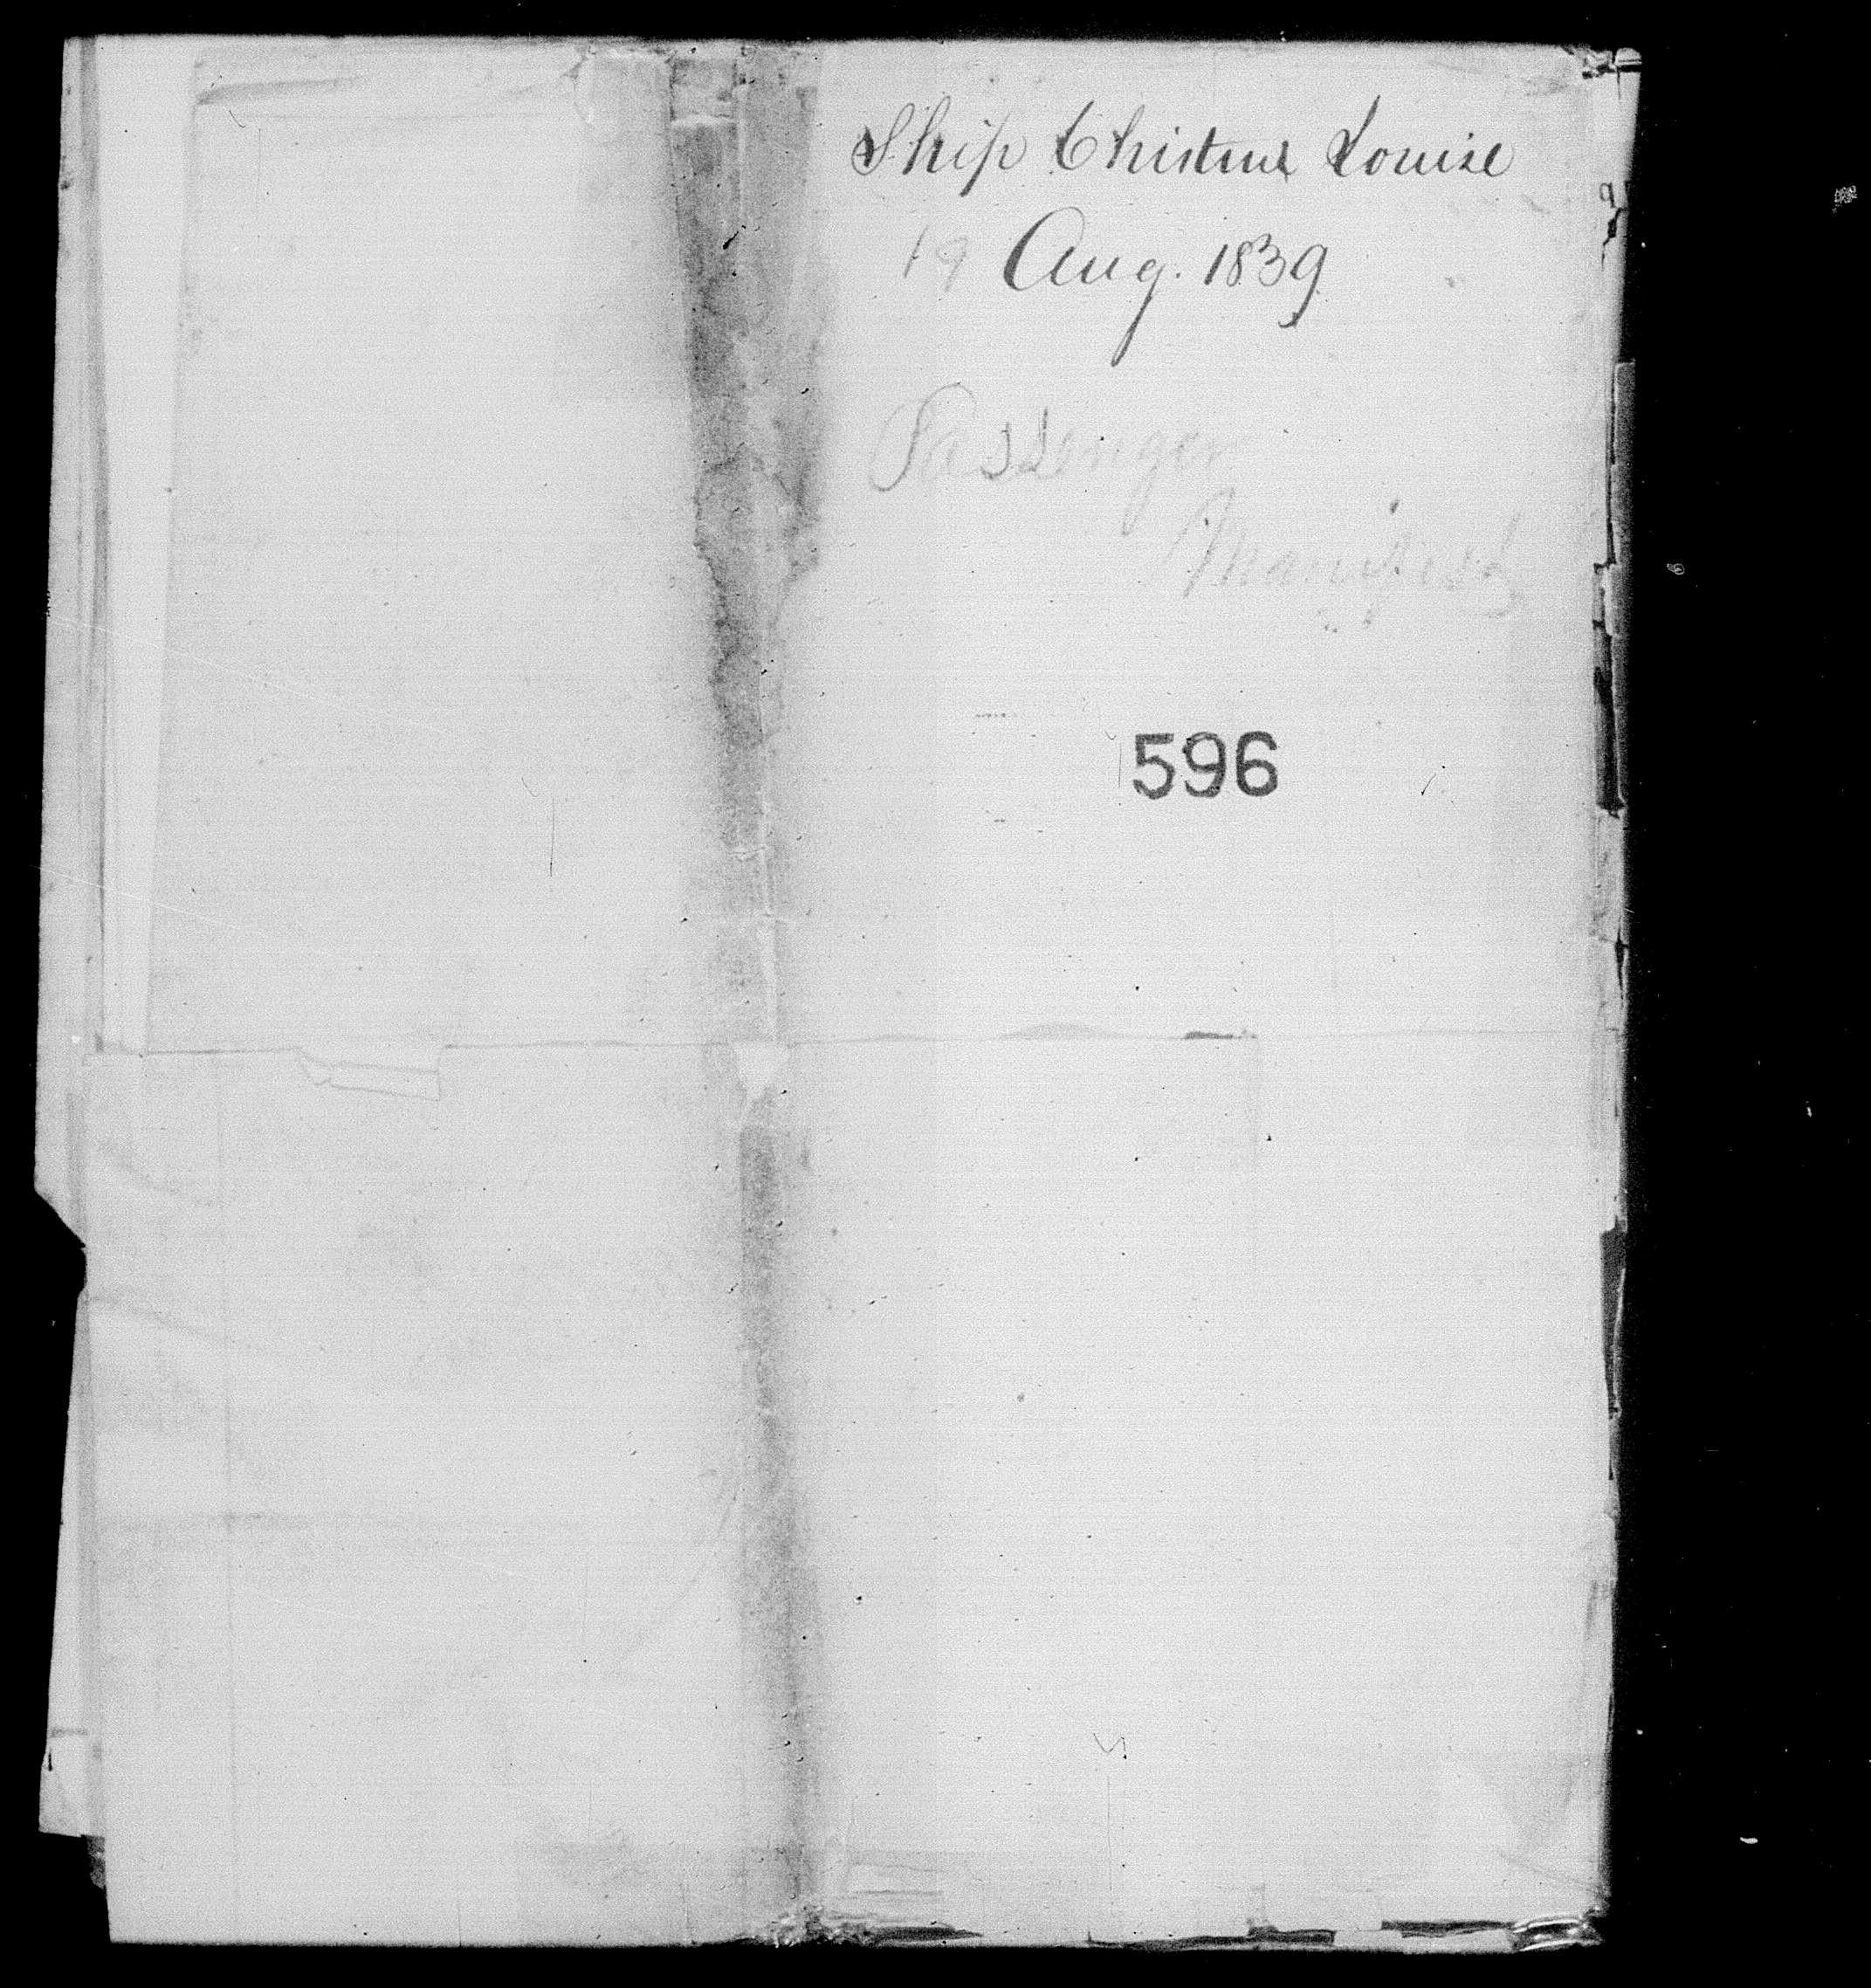 Ship Christine Louise
19 Aug. 1839
Passenger
Manifest
596